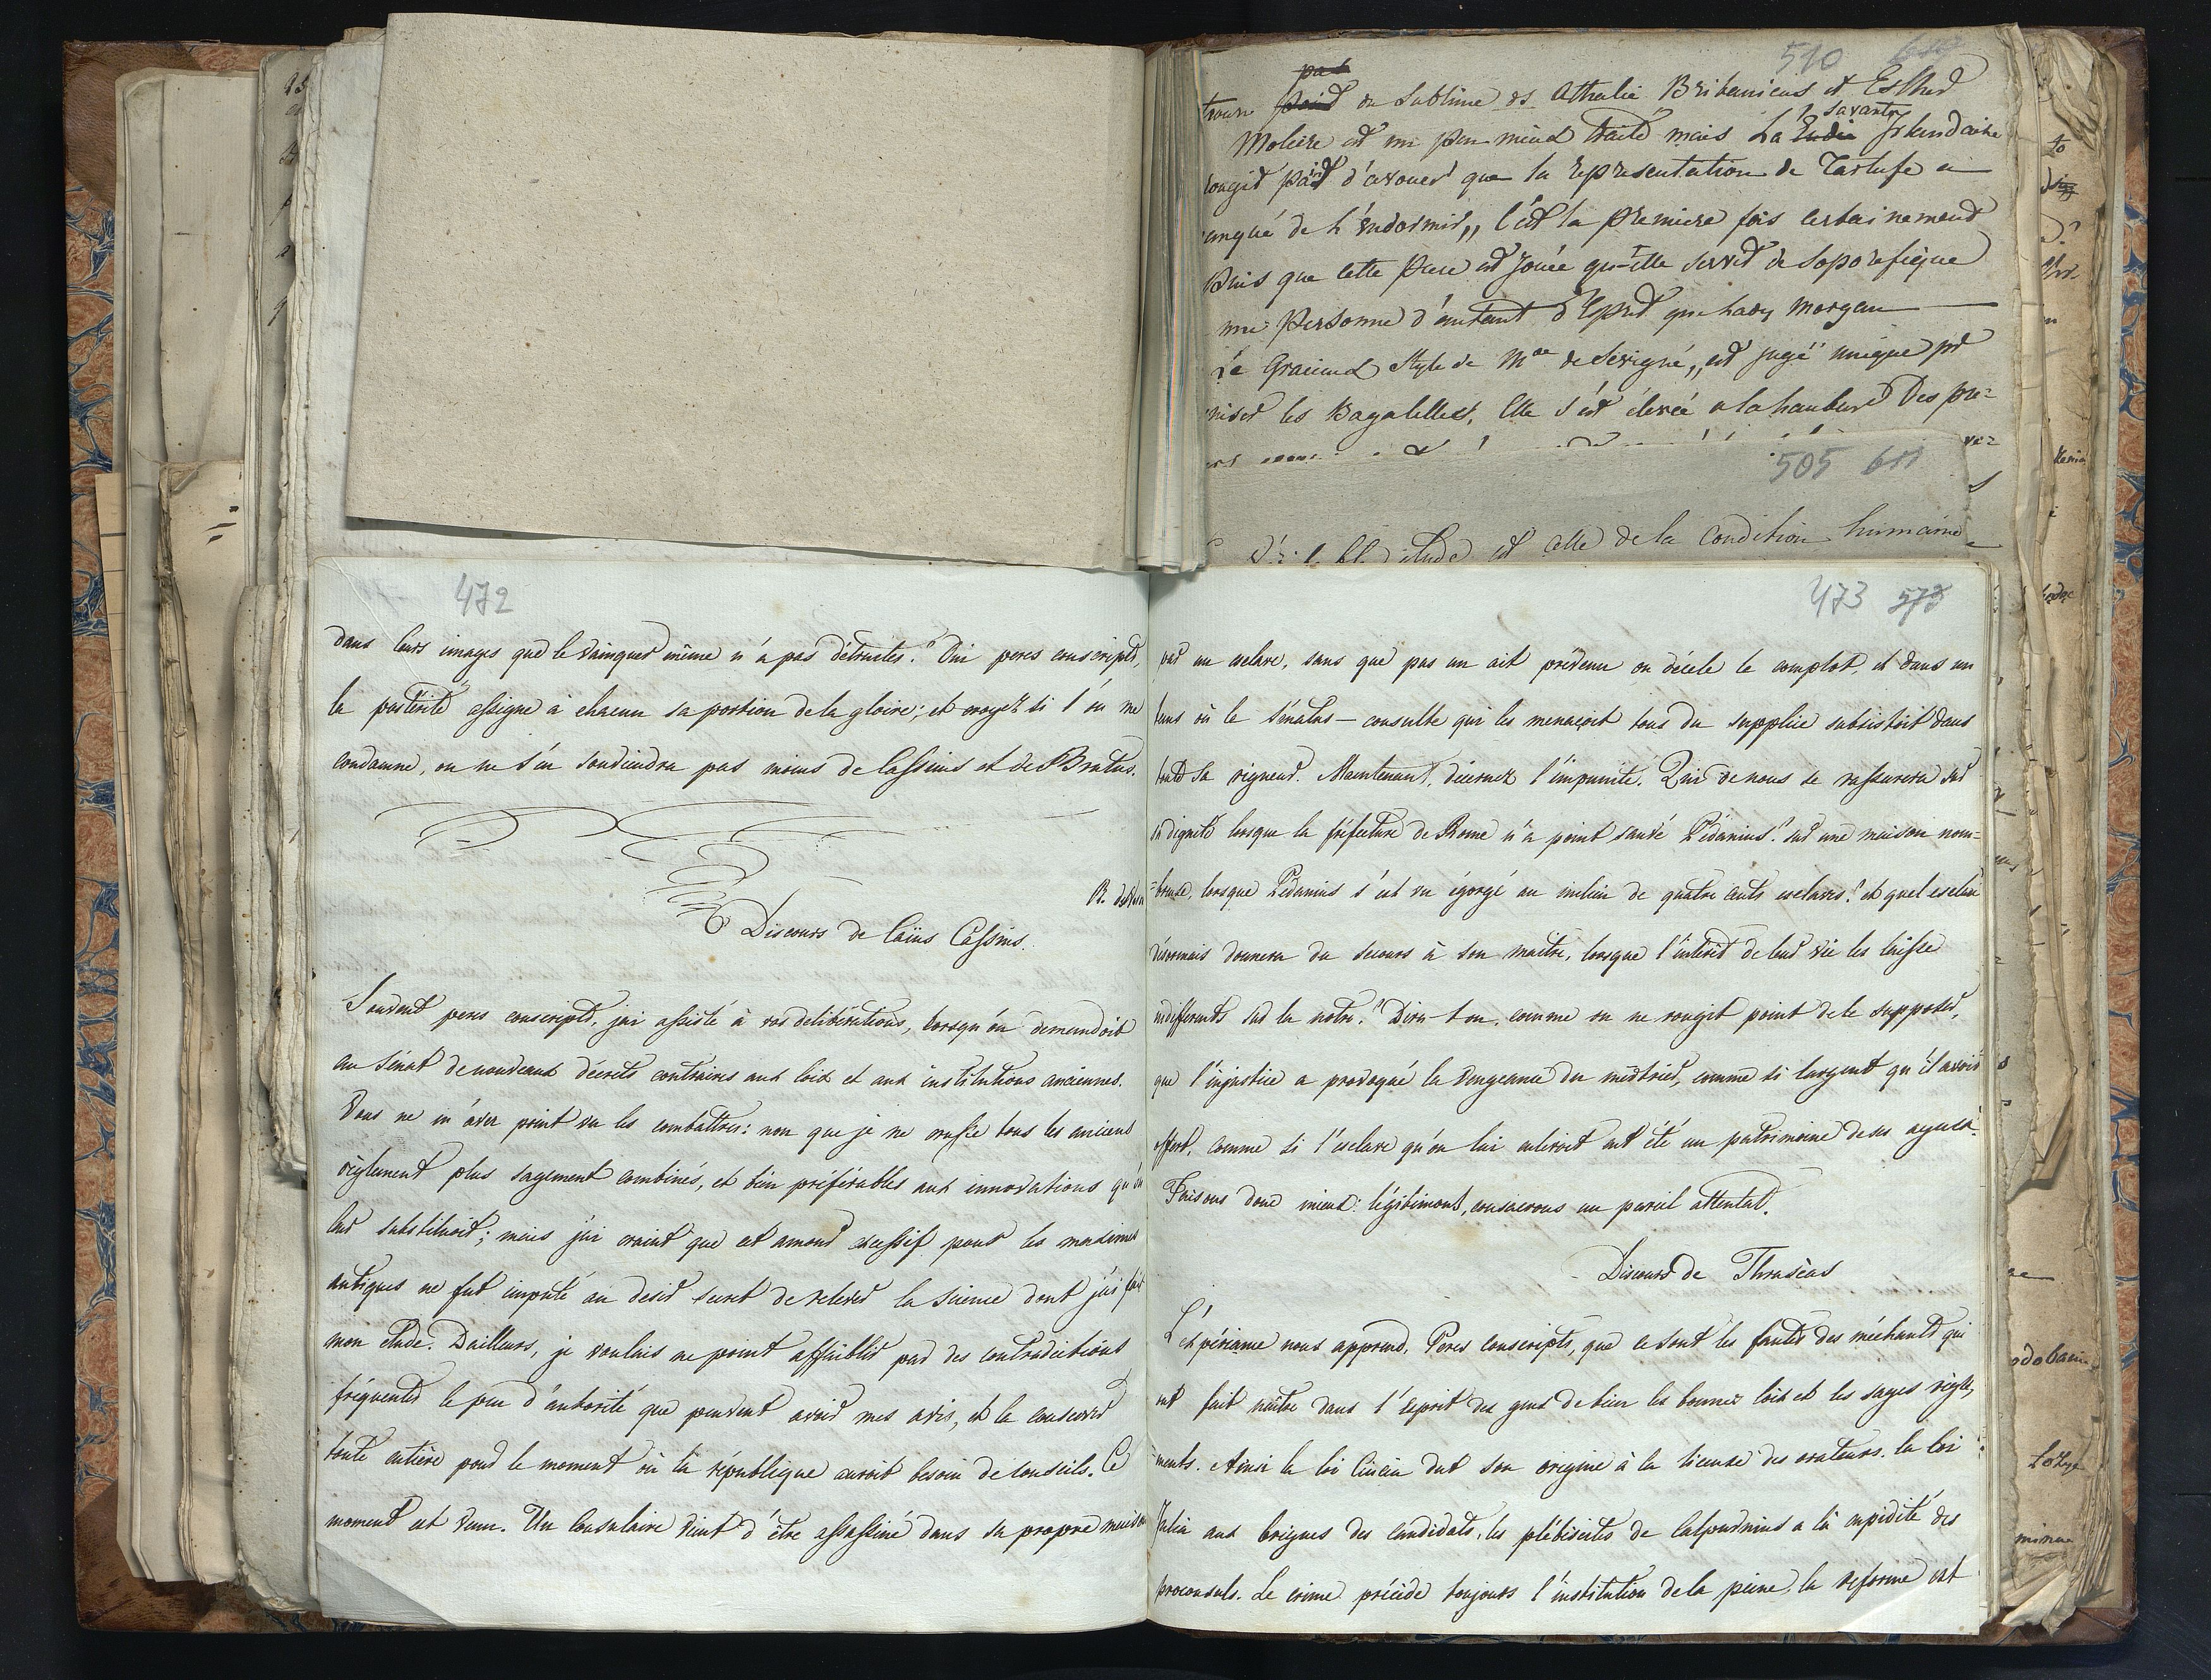 510
pas
trouve point du sublime ds Athalie Britanicus et Esther
savante
Moliere est un peu mieux traité mais La Irlandaise
rougit pas d'avouer que la representation de Tartufe a
manqué de l'endormir,, c'est la premiere fois certainement
puis que cette piece est jouée qu'elle servit de soporifique
une personne d'autant d'esprit que Lady Morgan
Le Gracieux style de Mde de Sevigné,, est jugé unique pr
les Bagatelles, Elle s'est élevée a la hauteur Des pre=
505 611
étude est celle de la condition humaine
472
dans leurs images que le vainqueur même n'a pas détruites? Oui peres conscripts,
la postérité assigne à chacun sa portion de la gloire; et croyez si l'on me
condamne, on ne s'en souviendra pas moins de Cassius et de Brutus.
Discours de Caïus Cassius.
Souvent peres conscripts, j'ai assisté à vos délibérations, lorsqu'on demandoit
au Sénat de nouveaux décrets contraires aux loix et aux institutions anciennes.
Vous ne m'avez point vu les combattre: non que je ne crusse tous les anciens
règlement plus sagement combinés, et bien préférables aux innovations qu'on
leur substituoit; mais j'ai craint que cet amour excessif pour les maximes
antiques ne fut imputé au desir secret de relever la science dont j'ai fait
mon étude. D'ailleurs, je voulais ne point affaiblir par des contradictions
fréquentes le peu d'autorité que peuvent avoir mes avis, et la conserver
toute entière pour le moment où la république auroit besoin de conseils. Ce
moment est venu. Un Consulaire vient d'être assassiné dans sa propre maison
473 573
par un esclave, sans que pas un ait prévenu ou décelé le complot, et dans un
tems où le sénatus-consulte qui les menaçoit tous du supplice subsistoit dans
toute sa vigueur. Maintenant, décernez l'impunité. Qui de nous se rassurera sur
sa dignité lorsque la préfecture de Rome n'a point sauvé Pédanius? sur une maison nom=
=breuse, lorsque Pédanius s'est vu égorgé au milieu de quatre cents esclaves? et quel esclave
désormais donnera du secours à son maitre, lorsque l'intérêt de leur vie les laisse
indifferents sur la notre? Dira-t-on, comme on ne rougit point de le supposer,
que l'injustice a provoqué la vengeance du meutrier, comme si l'argent qu'il avoit
offert, comme si l'esclave qu'on lui enlevoit eut été un patrimoine de ses ayeux?
Faisons donc mieux: légitimons, consacrons un pareil attentat.
Discours de Thraséas
L'expérience nous apprend, Peres conscripts, que ce sont les fautes des méchants qui
ont fait naître dans l'esprit des gens de bien les bonnes loix et les sages règle,
ments. Ainsi la loi Cincia dut son origine à la licence des orateurs. la loi
Julia aux brigues des candidats, les plébiscites de Calpurnius a la cupidité des
proconsuls. Le crime précède toujours l'institution de la peine, la reforme est